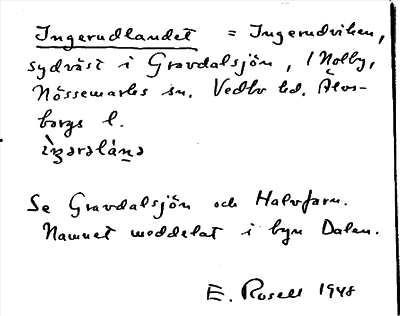 Ingerudlandet = Ingerudviken,
sydväst i Gravdalsjön, / Nolby,
Nössemarks sn. Vedbo hd. Älvs-
borgs l.
Se Gravdalsjön och Halvfarn.
Namnet meddelat i byn Dalen.
E. Rosell 1948